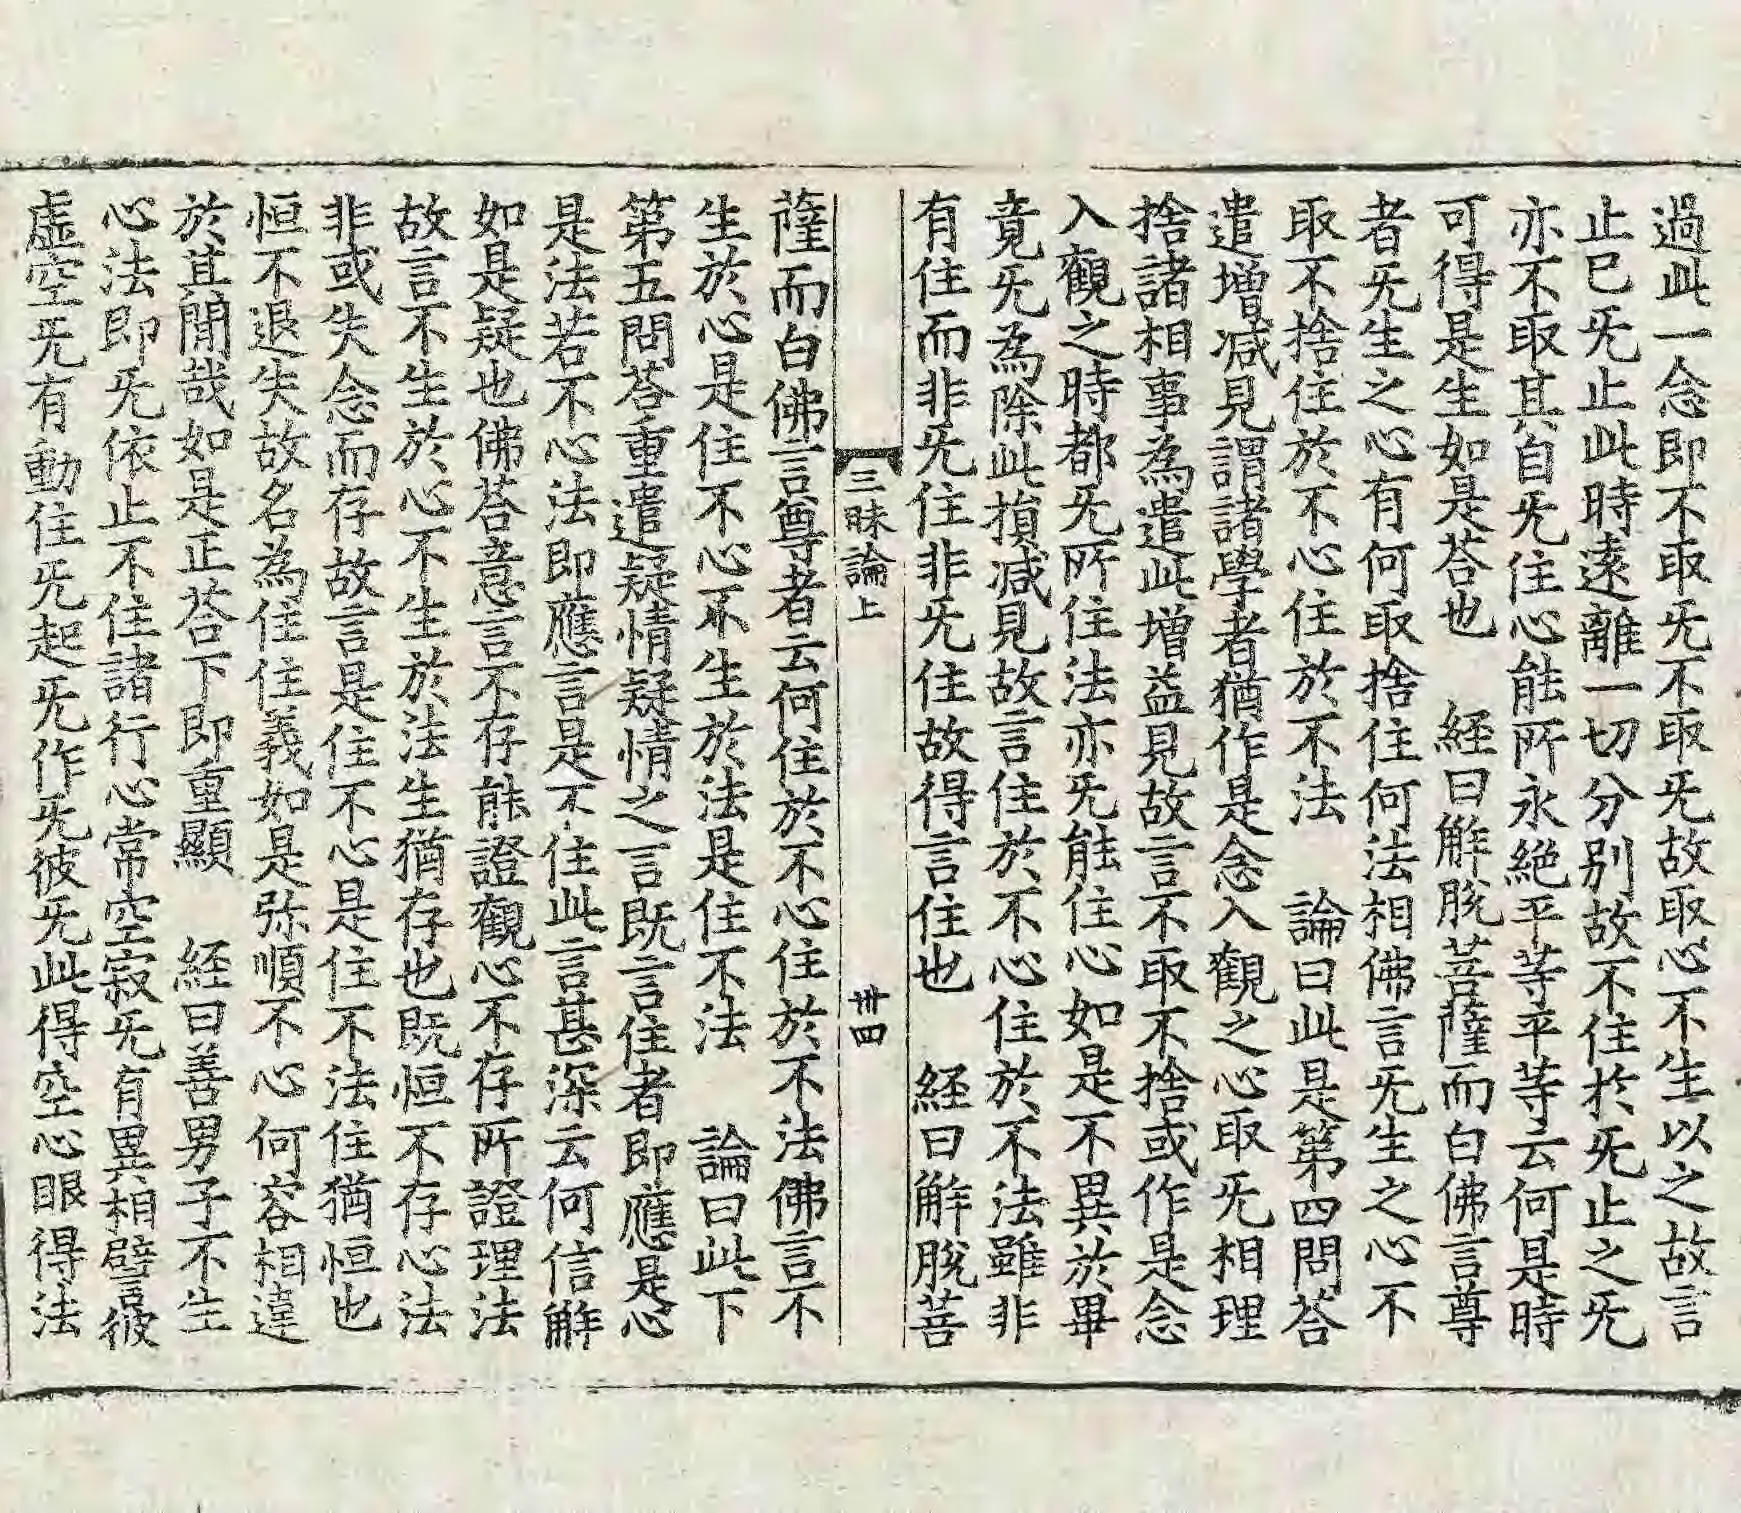 過此一念即不取旡不取旡故取心不生以之故言
止已旡止此時遠離一切分别故不住於旡止之旡
亦不取其自旡住心能所永絶平等平等云何是時
可得是生如是荅也　經曰解脫菩薩而白佛言尊
者旡生之心有何取捨住何法相佛言旡生之心不
取不捨住於不心住於不法　論曰此是第四問荅
遣增减見謂諸學者猶作是念入觀之心取旡相理
捨諸相事為遣此增益見故言不取不捨或作是念
入觀之時都旡所住法亦旡能住心如是不異於畢
竟旡為除此損减見故言住於不心住於不法雖非
有住而非旡住非旡住故得言住也　經曰解脫菩
三昧論上　卅四
薩而白佛言尊者云何住於不心住於不法佛言不
生於心是住不心不生於法是住不法　論曰此下
第五問荅重遣疑情疑情之言既言住者即應是心
是法若不心法即應言是不住此言甚深云何信解
如是疑也佛荅意言不存能證觀心不存所證理法
故言不生於心不生於法生猶存也既恒不存心法
非或失念而存故言是住不心是住不法住猶恒也
恒不退失故名為住住義如是弥順不心何容相違
於其閒哉如是正荅下即重顯　經曰善男子不生
心法即旡依止不住諸行心常空寂旡有異相譬彼
虛空旡有動住旡起旡作旡彼旡此得空心眼得法